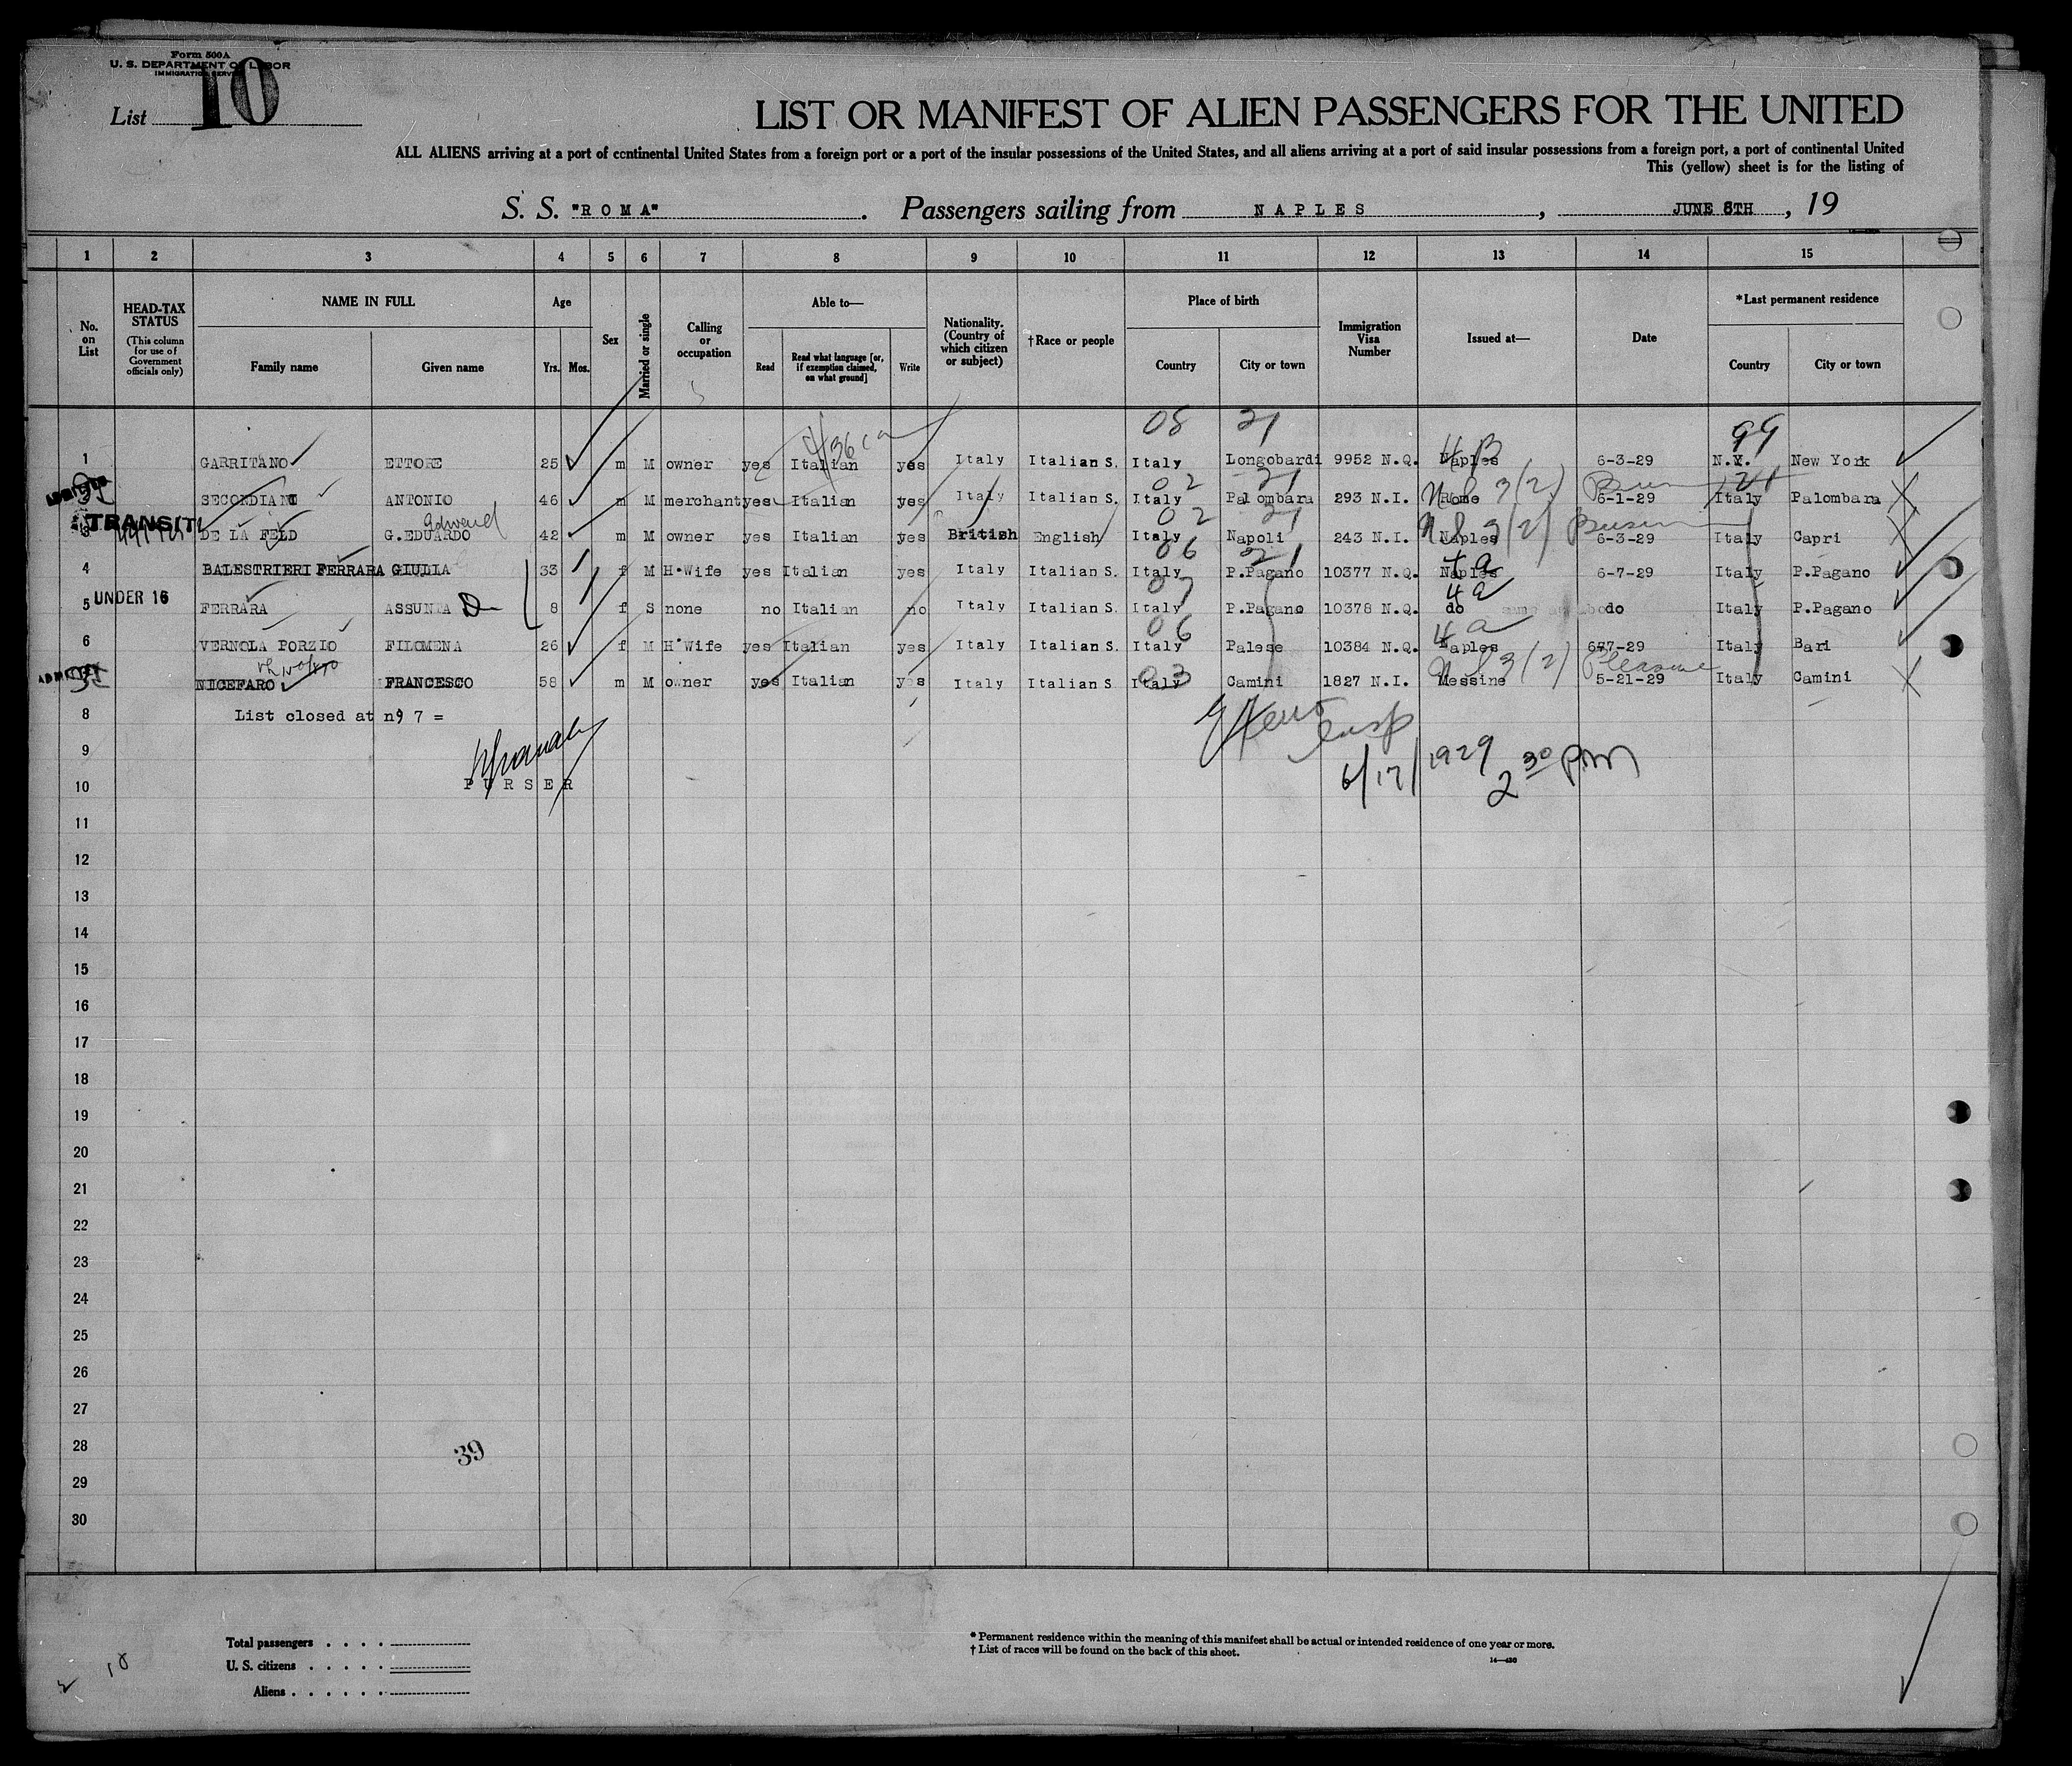 Form 500A
U. S. DEPARTMENT OF LABOR
IMMIGRATION SERVICE
List 10
LIST OR MANIFEST OF ALIEN PASSENGERS FOR THE UNITED
ALL ALIENS arriving at a port of continental United States from a foreign port or a port of the insular possessions of the United States, and all aliens arriving at a port of said insular possessions from a foreign port, a port of continental United
This (yellow) sheet is for the listing of
S. S. "ROMA". Passengers sailing from NAPLES, JUNE 8TH, 19
1 2 3 4 5 6 7 8 9 10 11 12 13 14 15
No. on List
HEAD-TAX STATUS (This column for use of Government officials only)
NAME IN FULL
Family name Given name
Age
Yrs. Mos.
Sex
Married or single
Calling or occupation
Able to—
Read Read what language [or, if exemption claimed, on what ground] Write
Nationality. (Country of which citizen or subject)
†Race or people
Place of birth
Country City or town
Immigration Visa Number
Issued at—
Date
*Last permanent residence
Country City or town
08 21 4B 99
1 GARRITANO ETTORE 25 m M owner yes Italian yes Italy Italian S. Italy Longobardi 9952 N.Q. Naples 6-3-29 N.Y. New York
02 21 3(2) 21
SECONDIANI ANTONIO 46 m M merchant yes Italian yes Italy Italian S. Italy Palombara 293 N.I. Rome 6-1-29 Italy Palombara
Edward 02 21 3(2)
3 TRANSIT DE LA FELD G.EDUARDO 42 m M owner yes Italian yes British English Italy Napoli 243 N.I. Naples 6-3-29 Italy Capri
06 21 4a
4 BALESTRIERI FERRARA GIULIA 33 f M H.Wife yes Italian yes Italy Italian S. Italy P.Pagano 10377 N.Q. Naples 6-7-29 Italy P.Pagano
07 4a
5 UNDER 16 FERRARA ASSUNTA 8 f S none no Italian no Italy Italian S. Italy P.Pagano 10378 N.Q. do do Italy P.Pagano
06 4a
6 VERNOLA PORZIO FILOMENA 26 f M H.Wife yes Italian yes Italy Italian S. Italy Palese 10384 N.Q. Naples 6-7-29 Italy Bari
03 3(2) Pleasure
ADMITTED NICEFARO FRANCESCO 58 m M owner yes Italian yes Italy Italian S Italy Camini 1827 N.I. Messine 5-21-29 Italy Camini
8 List closed at nº 7 =
9
10 PURSER
6/17/1929 2 30 PM
11
12
13
14
15
16
17
18
19
20
21
22
23
24
25
26
27
28
39
29
30
Total passengers
U. S. citizens
Aliens
* Permanent residence within the meaning of this manifest shall be actual or intended residence of one year or more.
† List of races will be found on the back of this sheet.
14—430